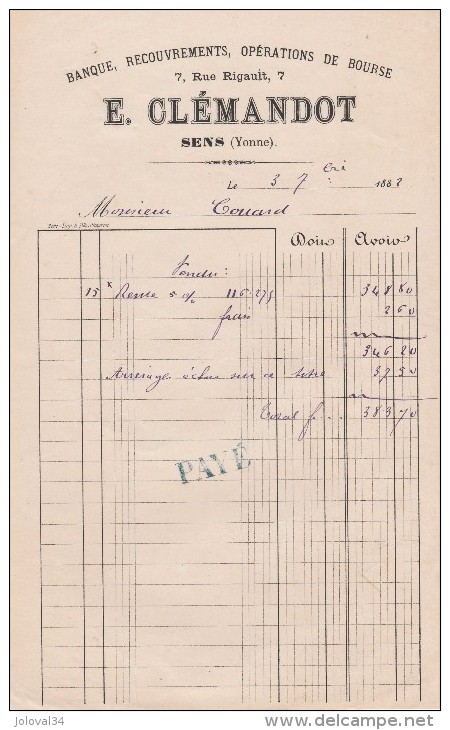 BANQUE, RECOUVREMENTS, OPÉRATIONS DE BOURSE
7, Rue Rigault, 7
E. CLÉMANDOT
SENS (Yonne).
Le 3 7bre 1882
Monsieur Couard
Doit Avoir
Vendu:
15 x Rente 5 % 116.275 348 80
frais 2 60
346 20
Arrérages échus sur ce titre 37 50
Total f. .. 383 70
PAYÉ
joloval34
www.delcampe.net